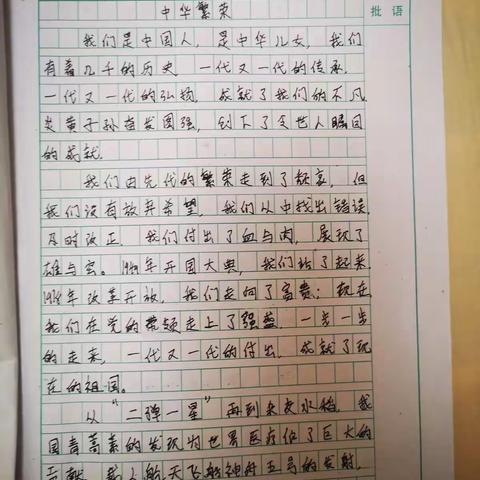 批语
中华繁荣
我们是中国人，是中华儿女，我们
有着几千的历史 一代又一代的传承，
一代又一代的弘扬，成就了我们的不凡，
炎黄子孙奋发图强，创下了令世人瞩目
的成就。
我们由先代的繁荣走到了颓哀，但
我们没有放弃希望，我们从中找出错误，
及时改正，我们付出了血与肉，展现了
雄与宏。1949年开国大典，我们站了起来，
1978年改革开放，我们走向了富贵；现在
我们在党的带领走上了强盛，一步一步
的走来，一代又一代的付出，成就了现
在的祖国。
从“二弹一星”再到杂交水稻，我
国青蒿素的发现为世界医疗做了巨大的
贡献，载人航天飞船神舟五号的发射，